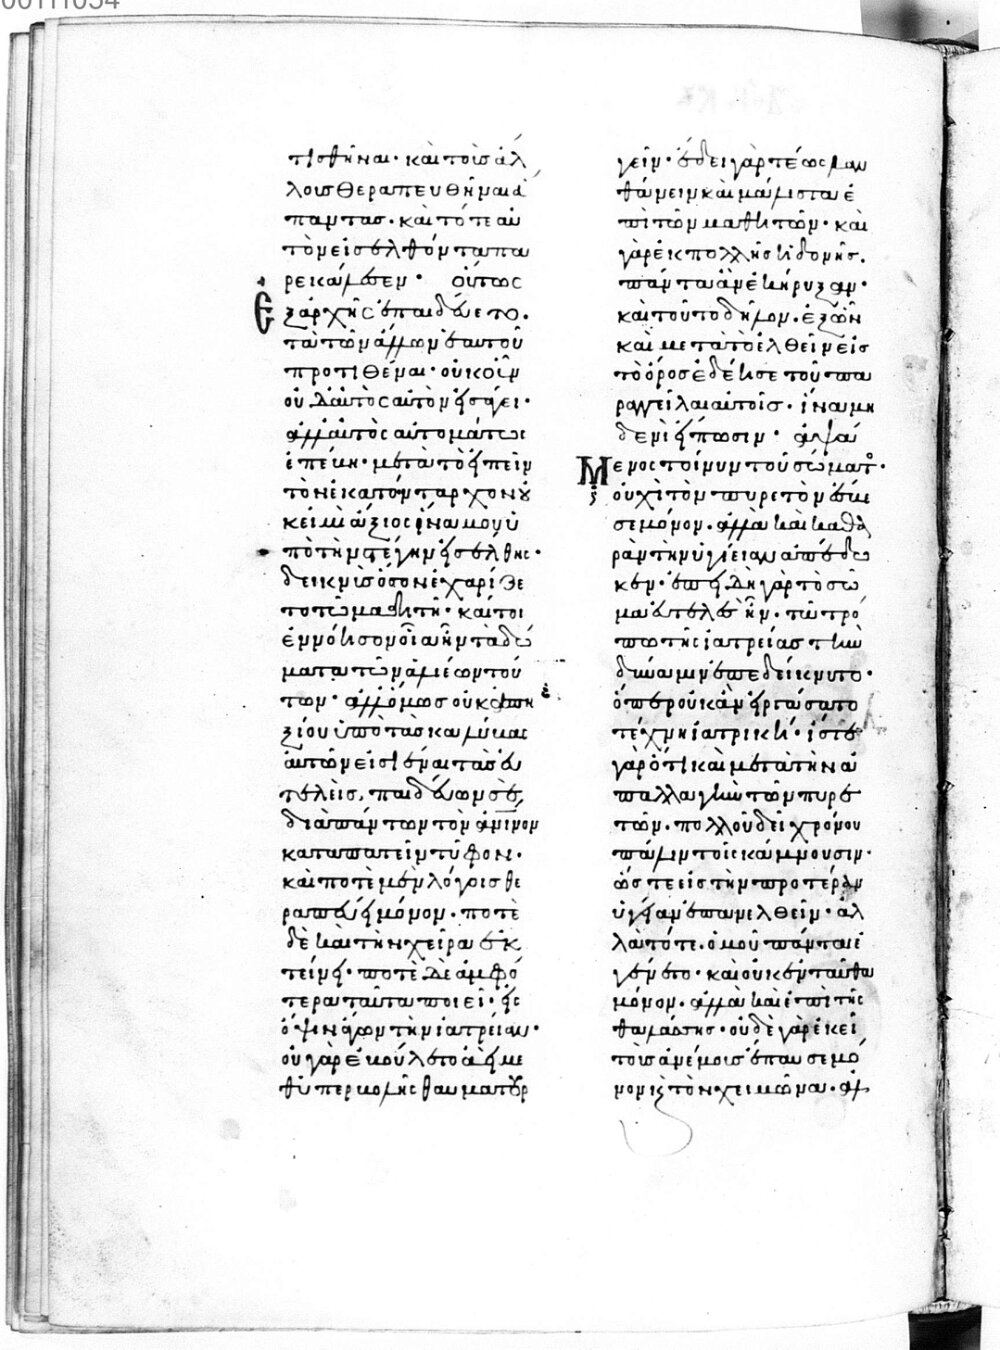 τισθῆναι· καὶ τοῖς ἀλ
λοις θεραπευθῆναι ἅ
παντας. καὶ τότε αὐ
τὸν εἰσελθόντα πα
ρεκάλεσεν· οὕτως
ἐξαρχῆς ἐπαιδεύετο.
τὰ τῶν ἄλλων ἑαυτοῦ
προτιθέναι· οὐκοῦν
οὐδὲ αὐτὸς αὐτὸν ἕλκει·
ἀλλ' αὐτὸς αὐτομάτως
ἐπέβη· μετὰ τὸ εἰπεῖν
τὸν ἑκατόνταρχον οὐ
κ εἰμὶ ἄξιος ἵνα μου ὑ
πὸ τὴν στέγην εἰσέλθης·
δεικνὺς ὅσον ἐχαρίζε
το τῶ μαθητῆ· καίτοι
ἐννόησον οἷα ἦν τὰ δώ
ματα τῶν ἁλιέων τού
των· ἀλλ' ὅμως οὐκ ἀπη
ξίου ὑπὸ τὰς καλύβας
αὐτῶν εἰσιέναι τὰς εὐ
τελεῖς, παιδεύων σε
διὰ πάντων τὸν ἀνινον
καταπατεῖν τῦφον·
καὶ ποτὲ μὲν λόγοις θε
ραπεύει μόνον· ποτὲ
δὲ καὶ τὴν χεῖρα ἐκ
τείνει· ποτὲ δὲ ἀμφό
τερα ταῦτα ποιεῖ· εἰς
ὄψιν ἄγων τὴν ἰατρείαν·
οὐ γὰρ ἐβούλετο ἀεὶ με
θ' ὑπερβολῆς θαυματουρ
γεῖν· ἔδει γὰρ τέως λαν
θάνειν καὶ μάλιστα ἐ
πὶ τῶν μαθητῶν· καὶ
γὰρ ἐκ πολλῆς ἡδονῆς.
πάντα ἂν ἐκήρυξαν·
καὶ τοῦτο δῆλον. ἐξ ὧν
καὶ μετὰ τὸ ἐλθεῖν εἰς
τὸ ὄρος ἐδέησε τοῦ πα
ραγγεῖλαι αὐτοῖς· ἵνα μη
δενὶ εἴπωσιν· ἁψά
μενος τοίνυν τοῦ σώματος·
οὐχὶ τὸν πυρετὸν ἔσβε
σε μόνον. ἀλλὰ καὶ καθα
ρὰν τὴν ὑγίειαν ἀπέδω
κεν· ἐπειδὴ γὰρ τὸ σῶ
μα εὐτελὲς ἦν· τῶ τρό
πω τῆς ἰατρείας τὴν
δύναμιν ἐπεδείκνυτο·
ὅπερ οὐκ ἂν εἰργάσατο
τέχνη ἰατρική· ἴστε
γὰρ ὅτι καὶ μετὰ τὴν ἀ
παλλαγὴν τῶν πυρε
τῶν. πολλοῦ δεῖ χρόνου
πάλιν τοῖς κάμνουσιν·
ὥστε εἰς τὴν προτέραν
ὑγείαν ἐπανελθεῖν· ἀλ
λὰ τότε. ὁμοῦ πάντα ἐ
γένετο· καὶ οὐκ ἐνταῦθα
μόνον. ἀλλὰ καὶ ἐπὶ τῆς
θαλάσσης· οὐδὲ γὰρ ἐκεῖ
τοῖς ἀνέμοις ἔπαυσε μό
νον κ τὸν χειμῶνα. ἀλ